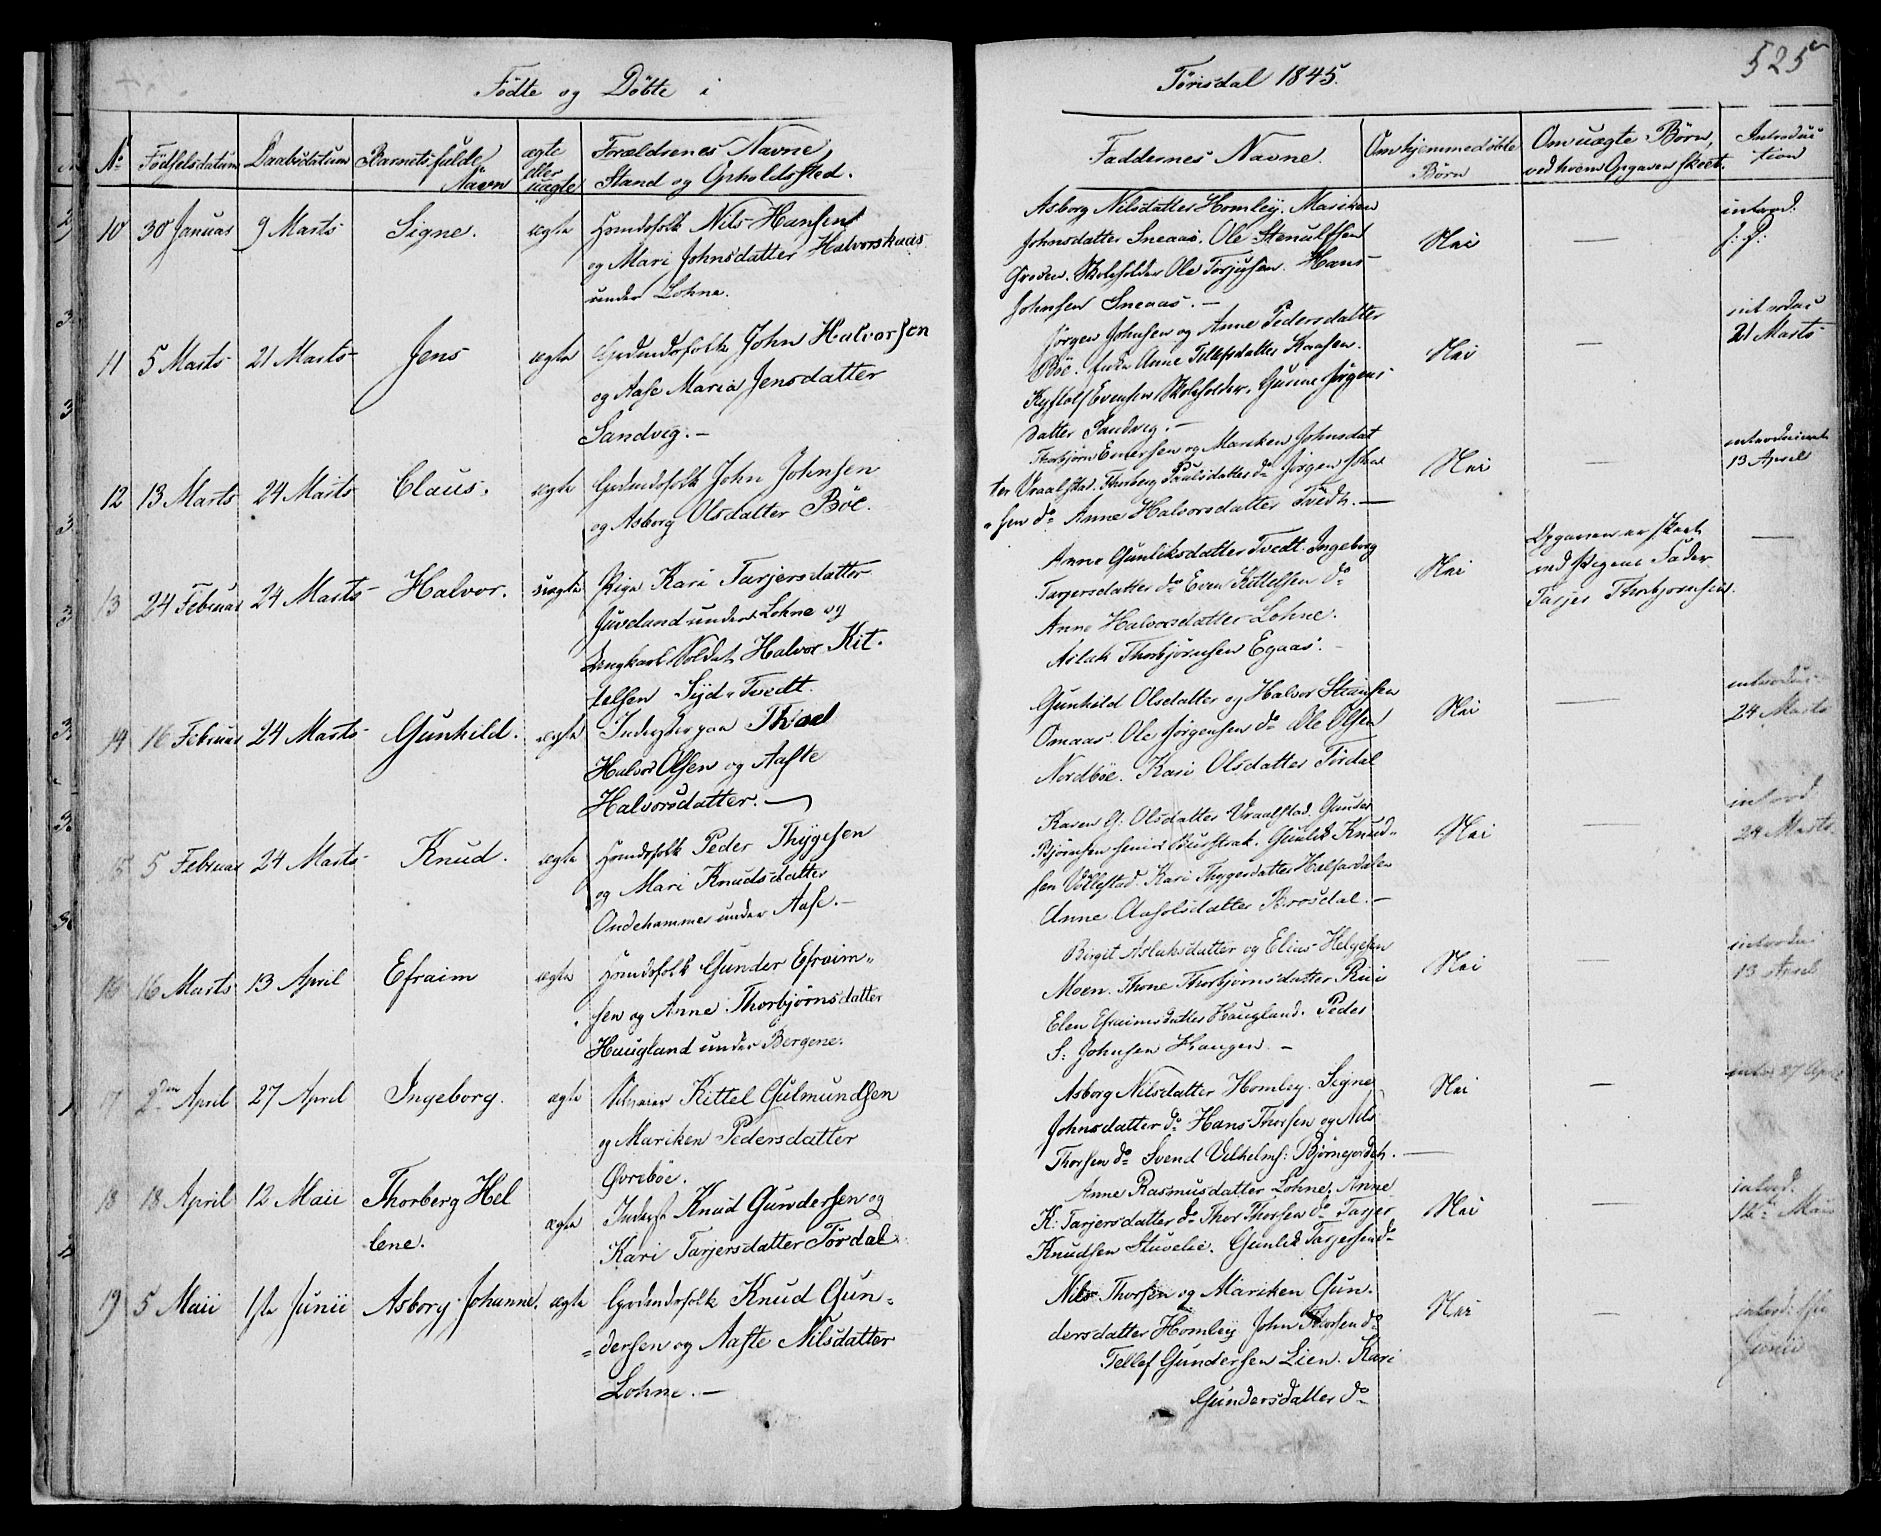 525
Födte og Döbte i
Törisdal 1845.
No
Födselsdatum
Daabsdatum
Barnets fulde Navn
ægte eller uægte
Forældrenes Navne, Stand og Opholdssted.
Faddernes Navne.
Om hjemmedöbte Börn
Om uægte Börn, ved hvem Opgaven skeet.
Introduction
10 30 Januar 9 Marts Signe. ægte
Huusfolk Nils Hansen
og Mari Johnsdatter Halvorskaas
under Lohne.
Asborg Nilsdatter Homley. Mariken
Johnsdatter Sneaas. Ole Stenulfsen
Groden. Skoleholder Ole Torjusen. Hans
Johnsen Sneaas. —
Nei —
introd.
11 5 Marts 21 Marts Jens ægte
Gaardmandsfolk John Halvorsen
og Aase Maria Jensdatter
Sandvig. —
Jörgen Johnsen og Anne Pedersdatter
Böe. Enke Anne Tellefsdatter Kaasen.
Evensen Skoleholder. Gunne Jörgens-
datter Sandvig. —
Nei —
introdus
21 Marts
12 13 Marts 24 Marts Claus. ægte
Gaardmandsfolk John Johnsen
og Asborg Olsdatter Böe.
Thorbjörn Enersen og Mariken Johnsdat
ter Vraalstad. Thorberg Paulsdatter do Jörgen
sen do Anne Halvorsdatter Tvedt. —
Nei —
introduceret
13 April
13 24 Februar 24 Marts Halvor. uægte
Pige Kari Tarjersdatter
Juveland under Lohne og
Ungkarl Soldat Halvor Kit-
telsen Syd-Tvedt.
Anne Gunliksdatter Tvedt. Ingeborg
Tarjersdatter do Even Kittelsen do
Anne Halvorsdatter Lohne.
Aslak Thorbjörnsen Egaas. —
Nei
Opgaven er skeet
ved Pigens Fader
Tarjer Thorbjörnsen.
—
14 16 Februar 24 Marts Gunhild. ægte
Inderster paa
Halvor Olsen og Aaste
Halvorsdatter. —
Gunhild Olsdatter og Halvor
Omaas. Ole Jörgensen do Ole Olsen
Nordböe. Kari Olsdatter Tördal
Nei —
introdus
24 Marts
15 5 Februar 24 Marts Knud. ægte
Huusfolk Peder Thygesen
og Mari Knudsdatter
Ondehammer under Aase. —
Karen G. Olsdatter Vraalstad. Gunder
Björnsen senior. Gunlik Knud-
sen Völlestad. Kari Thygesdatter Halfardalen
Anne Aasolsdatter Brosdal. —
Nei —
introd.
24 Marts
16 16 Marts 13 April Efraim ægte
Huusfolk Gunder Efraim-
sen og Anne Thorbjörnsdatter
Haugland under Bergene.
Birgit Aslaksdatter og Elias Helgesen
Moen. Thone Thorbjörnsdatter Rui
Elen Efraimsdatter Haugland. Peder
S. Johnsen Haugen. —
Nei —
introdu.
13 April
17 2den April 27 April Ingeborg. ægte
Kittel Gulmundsen
og Mariken Pedersdatter
Övreböe.
Asborg Nilsdatter Homley. Signe
Johnsdatter do Hans Thorsen og Nils
Thorsen do Svend Vilhelms: —
Nei —
intro 27 April
18 18 April 12 Maii Thorberg Hel
lene. ægte
Inderst Knud Gundersen og
Kari Tarjersdatter Tördal
Anne Rasmusdatter Lohne. Anne
K: Tarjersdatter do Thor Thorsen do Tarjer
Knudsen Stuvelie. Gunlik Tarjersen do
Nei —
introd.
12te Maii
19 5 Maii 1ste Junii Asborg Johanne. ægte
Gaardmandsfolk Knud Gun-
dersen og Aaste Nilsdatter
Lohne. —
Nils Thorsen og Mariken Gun-
dersdatter Homley John Thorsen do
Tellef Gundersen Lien. Kari
Gundersdatter do
Nei —
introd: 1ste
Junii